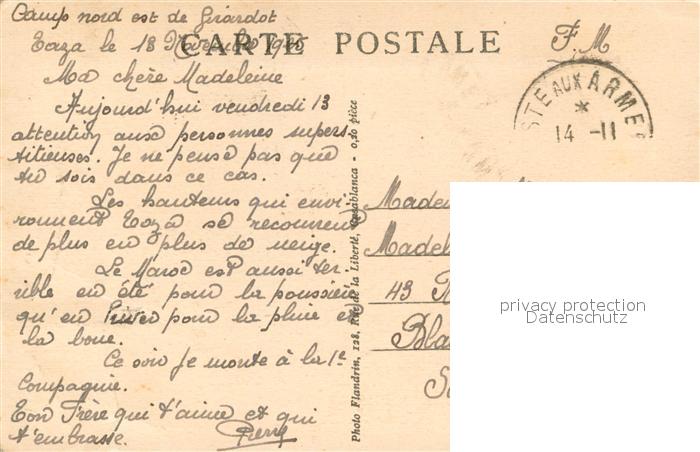 Camp nord est de Girardot
Taza le 13 Novembre
CARTE POSTALE
F. M
Ma chère Madeleine
Aujourd'hui vendredi 13
attention aux personnes supers-
titieuses. Je ne pense pas que
tu sois dans ce cas.
Les hauteurs qui envi-
ronnent Taza se recouvrent
de plus en plus de neige.
Le Maroc est aussi ter-
rible en été pour la poussière
qu'en hiver pour la pluie et
la boue.
Ce soir je monte à la 1e
Compagnie.
Ton Frère qui t'aime et qui
t'embrasse. Pierre
Photo Flandrin, 128, Rue de la Liberté, Casablanca - 0,20 pièce
STE AUX ARMÉES
14 -11
43
privacy protection
Datenschutz